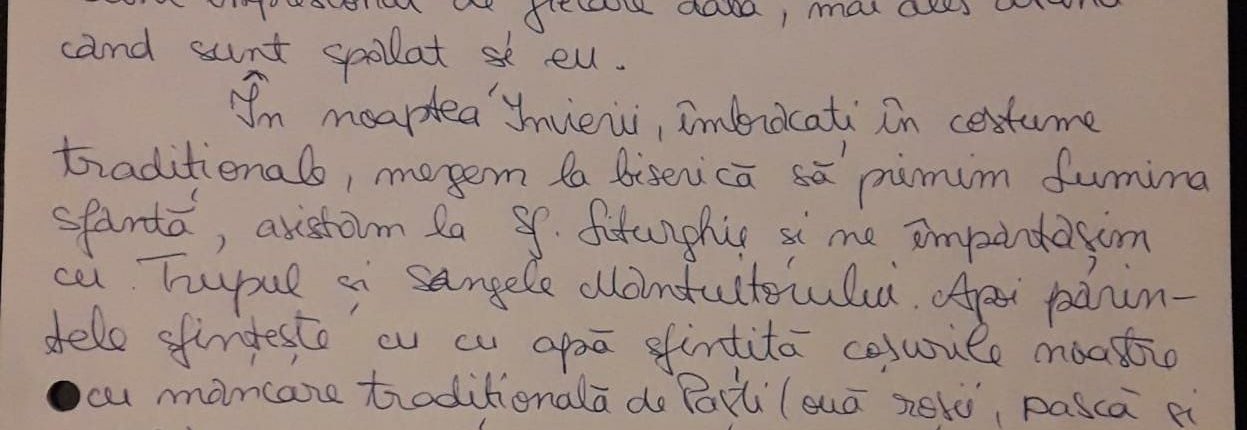 impresionat de fiecare dată, mai ales atunci
când sunt spălat și eu.
În noaptea Învierii, îmbrăcați în costume
tradiționale, mergem la biserică să primim Lumina
sfântă, asistăm la Sf. Liturghie și ne împărtășim
cu Trupul și Sângele Mântuitorului. Apoi părin-
tele sfințește cu cu apă sfințită coșurile noastre
cu mâncare tradițională de Paști (ouă roșii, pască și